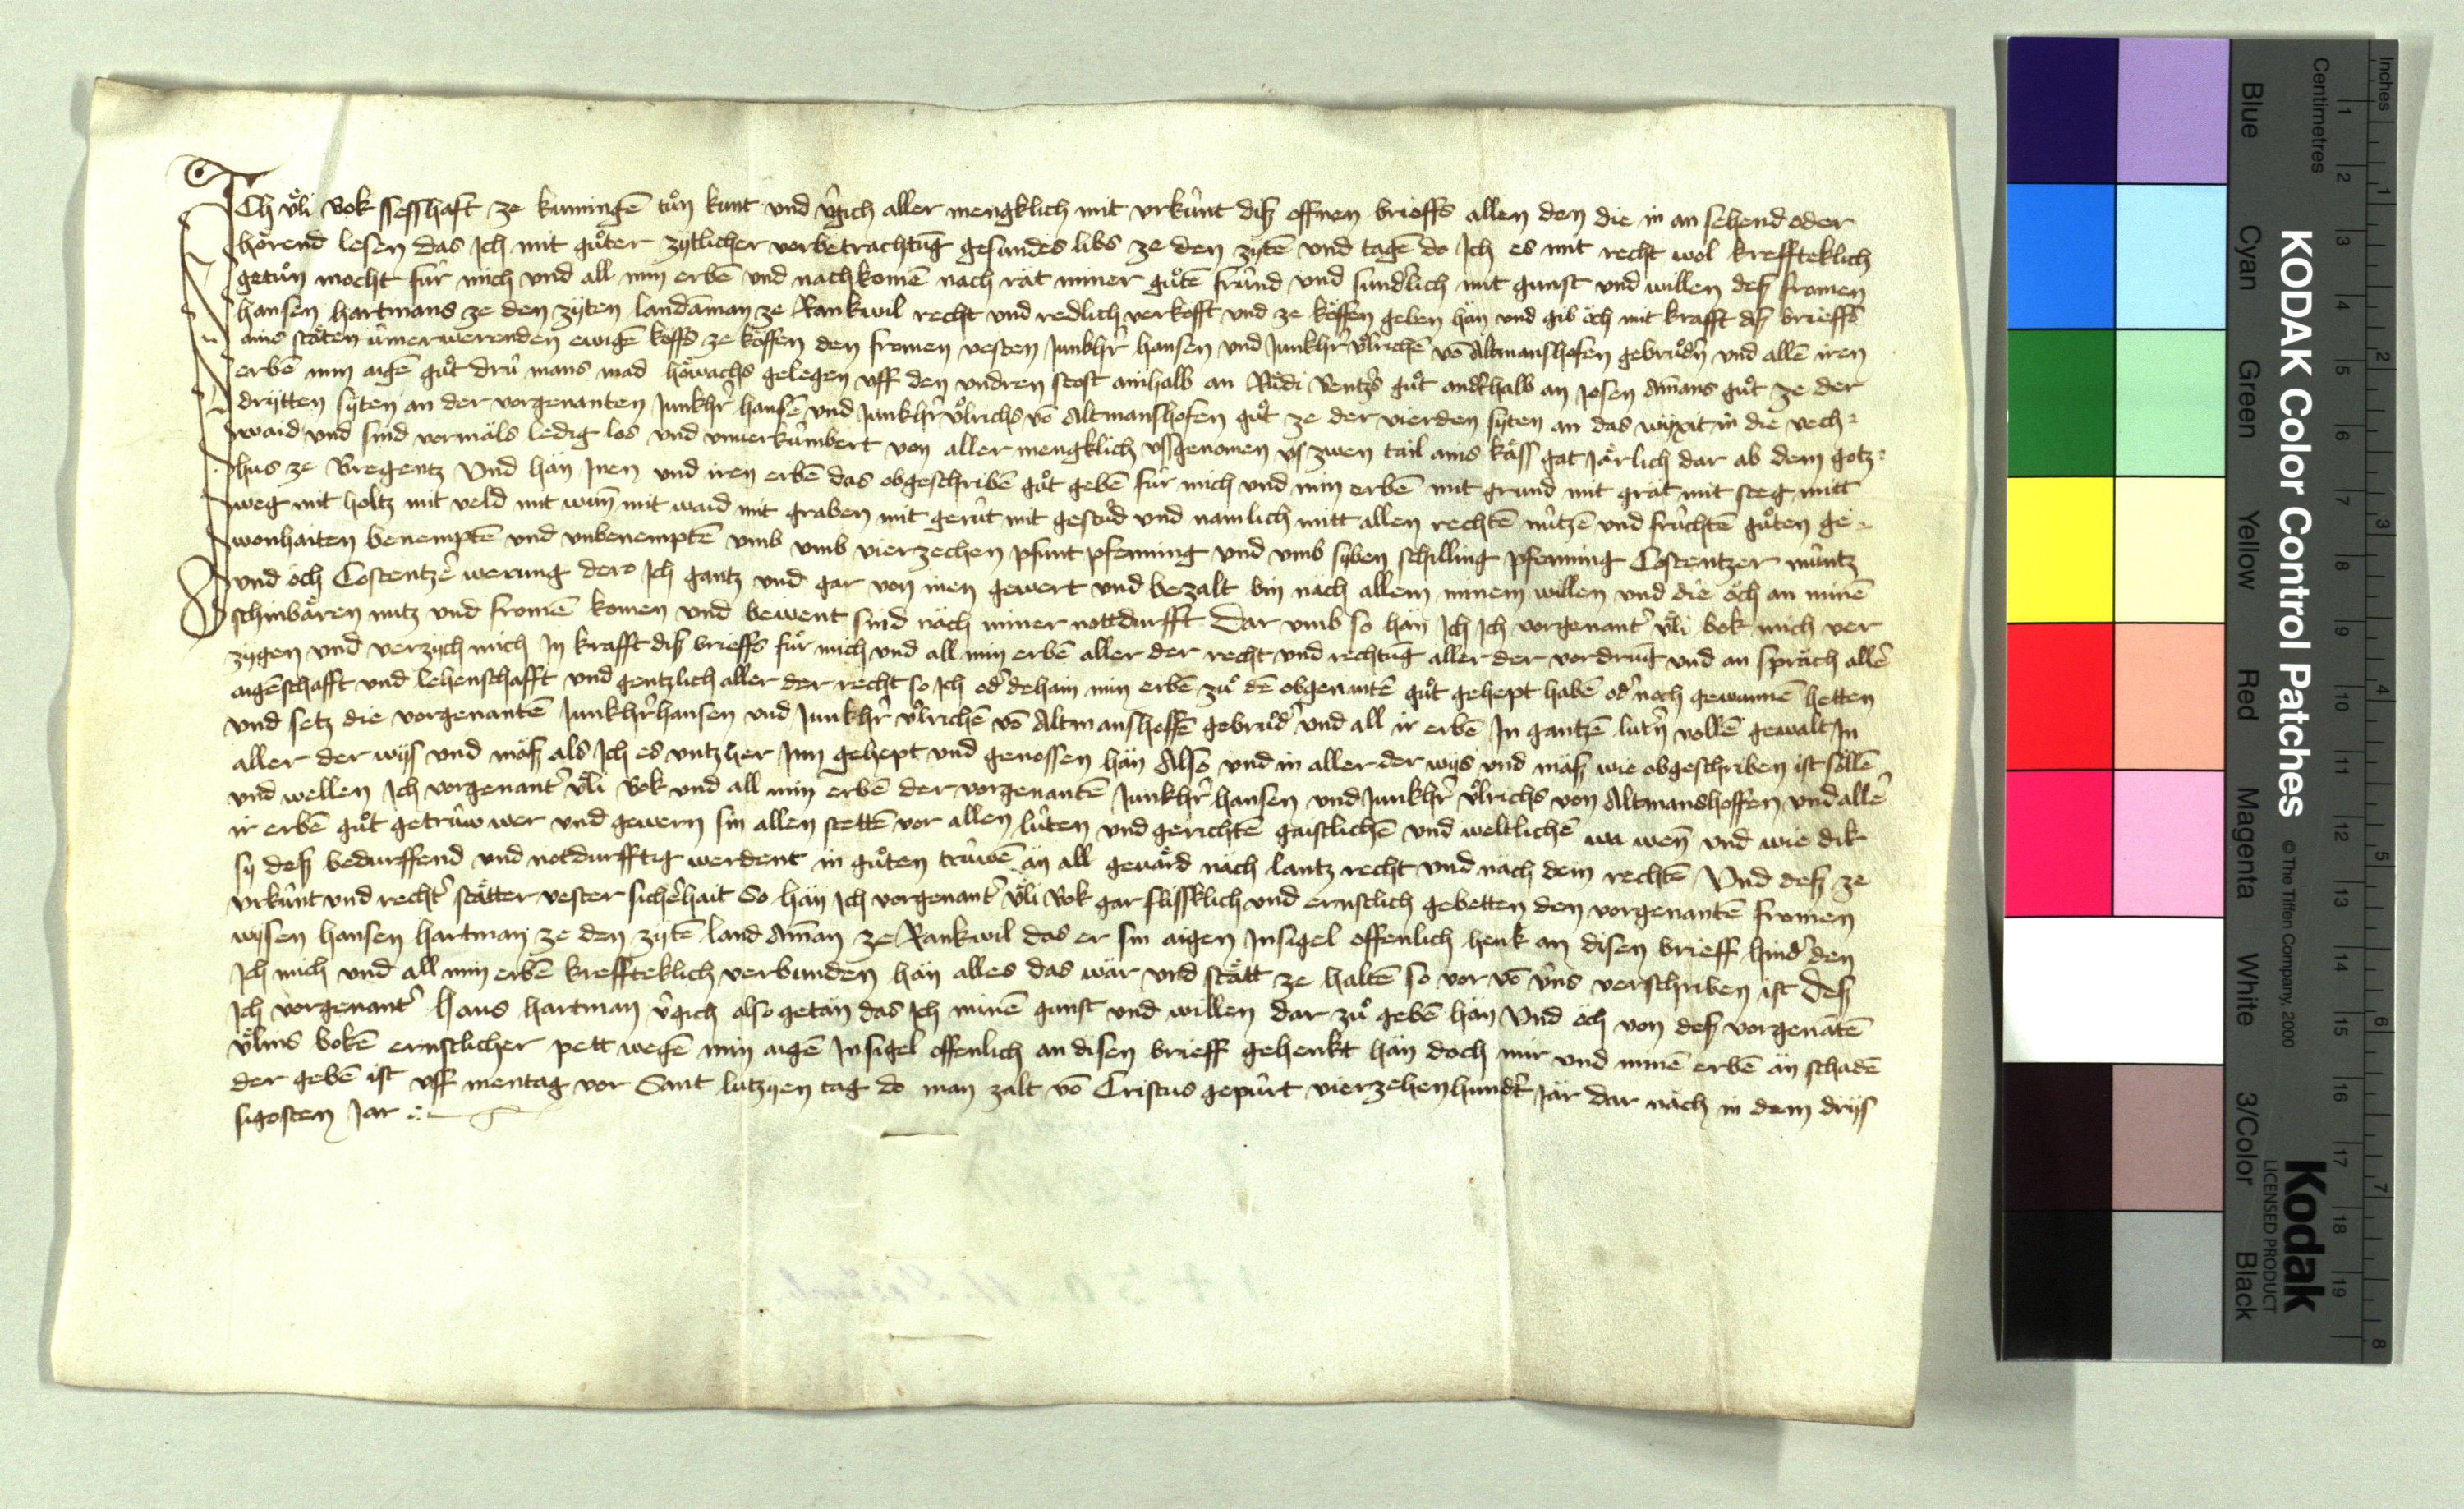 Ich uͤli Bok sesshaft ze kumingē tuͦn kunt und v̂gich aller mengklich mit urkúnt diß offnen brieffs allen den die in an sehend oder
hoͤrend lesen das Ich mit guͦter zytlicher vorbetrachtūg gesundes libs ze den zytē und tagē do Ich es mit recht wol kreffteklich
getuͦn mocht fúr mich und all min erbē und nachkomē nach rät miner guͦtē frúnd und sundlich mit gunst und willen deß fromen
hansen hartmans ze den zyten landāman ze Rankwil recht und redlich verkofft und ze koͤffen geben hän und gib öch mit krafft diß brieffs
ains staͤten úmerwerenden ewigē koffs ze koͤffen den fromen vesten Junkhr̄ hansen und Junkhr̄ uͦlrichē vō Altmanshofen gebruͦdn̄ und allē iren
erbē min aigē guͦt drú mans mad hoͤwachs gelegen uff den undren stost ainhalb an Ruͤdi Bentzs guͦt andr̄halb an Josen Am̄ans guͦt ze der
drytten syten an der vorgenanten Junkhr̄ hansē und Junkhr̄ uͦlrichs vō Altmanshofen guͦt ze der vierden syten an das in die vech-
waid und sind vormäls ledig los und unverkúmbert von aller mengklich ussgenomen us zwen tail ains kaͤss gat Jaͤrlich dar ab dem gotz-
hus ze Bregentz Und hän Inen und iren erbē das obgeschribē guͦt gebē fúr mich und min erbē mit grund mit grät mit steg mitt
weg mit holtz mit veld mit wun̄ mit waid mit graben mit gerút mit gestúd und namlich mitt allen rechtē nútzē und frúchtē guͦten ge-
wonhaiten benemptē und unbenemptē umb umb vierzechen pfunt pfenning und umb syben schilling pfenning Costentzer múntz
und öch Costentzer̄ werung dero Ich gantz und gar von inen gewert und bezalt bin näch allem minem willen und die öch an minē
schinbaͤren nutz und fromē komen und bewent sind näch miner nottdurfft Dar umb so hän Ich Ich vorgenant̄ uͤli bok mich ver
zygen und verzych mich In krafft diß brieffs fúr mich und all min erbē aller der recht und rechtūg aller der vordrūg und an spräch aller̄
aigēschafft und lehenschafft und gentzlich aller der recht so Ich od̄ dehain min erbē zuͦ dē obgenantē guͦt gehept habē od̄ noch gewunnē hetten
und setz die vorgenantē Junkhr̄ hansen und Junkhr̄ uͦlrichē vō Altmanshoffē gebruͦd̄ und all ir erbē In gantzē lutn̄ vollē gewalt In
aller der wys und mäß als Ich es untz her Inn gehept und genossen hän Also und in aller der wys und mäß wie obgeschriben ist soͤllē
und wellen Ich vorgenant̄ uͤli Bok und all min erbē der vorgenantē Junkhr̄ hansen und Junkhr̄ uͦlrichs von Altmanshoffen und aller̄
ir erbē guͦt getrúw wer und gewern sin allen stettē vor allen lúten und gerichtē gaistlichē und weltlichē wa wen̄ und wie dik
sy deß bedurffend und notdurfftig werdent in guͦten trúwē än all gevaͤrd näch lantz recht und näch dem rechtē Und deß ze
urkúnt und recht̄ staͤtter vester sicher̄hait So hän Ich vorgenant̄ uͤli Bok gar flissklich und ernstlich gebetten den vorgenantē fromen
wysen hansen hartman ze den zytē land Am̄an ze Rankwil das er sin aigen Insigel offenlich henk an disen brieff hind̄ den
Ich mich und all min erbē kreffteklich verbunden hän alles das wär und staͤtt ze haltē so vor vō úns verschriben ist Deß
Ich vorgenant̄ Hans hartman v̂gich also getän das Ich minē gunst und willen dar zuͦ gebē hän Und öch von deß vorgenātē
uͤlins bokē ernstlicher pett wegē min aigē Insigel offenlich an disen brieff gehenkt hän doch mir und minē erbē än schadē
der gebē ist uff mentag vor Sant lutzyen tag do man zalt vō Cristus gepúrt vierzehenhundt̄ Jär dar näch in dem dryss
sigosten Jar
KODAK Color Control Patches
© The Tiffen Company, 2000
Kodak
LICENSED PRODUCT
Blue Cyan Green Yellow Red Magenta White 3/Color Black
Centimetres
1 2 3 4 5 6 7 8 9 10 11 12 13 14 15 16 17 18 19
Inches
1 2 3 4 5 6 7 8